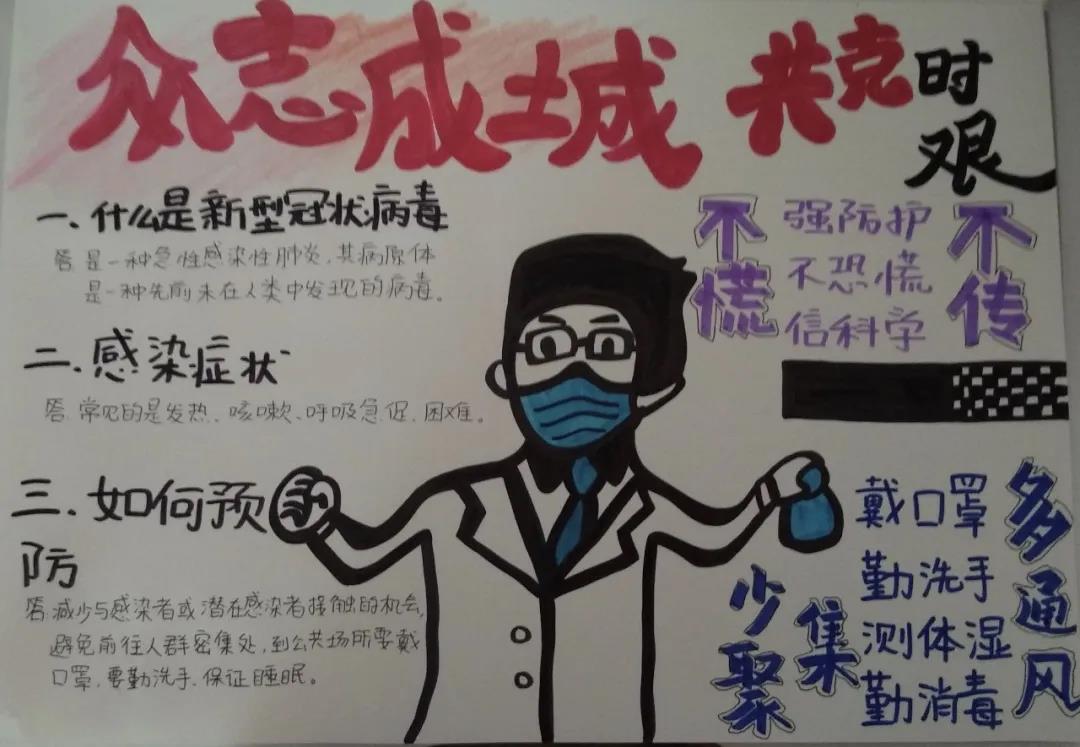 众志成城 共克时艰
一、什么是新型冠状病毒
答:是一种急性感染性肺炎,其病原体
是一种先前未在人类中发现的病毒。
二、感染症状
答:常见的是发热、咳嗽、呼吸急促、困难。
三、如何预
防
答:减少与感染者或潜在感染者接触的机会,
避免前往人群密集处,到公共场所要戴
口罩,要勤洗手、保证睡眠。
不慌
强防护
不恐慌
信科学
不传
少聚集
戴口罩
勤洗手
测体湿
勤消毒
多通风